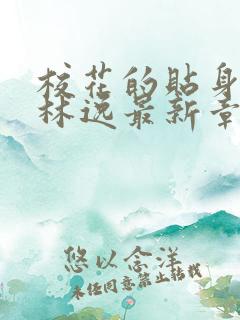 校花的贴身
林逸最新章
悠以念洋
未经同意禁止转载